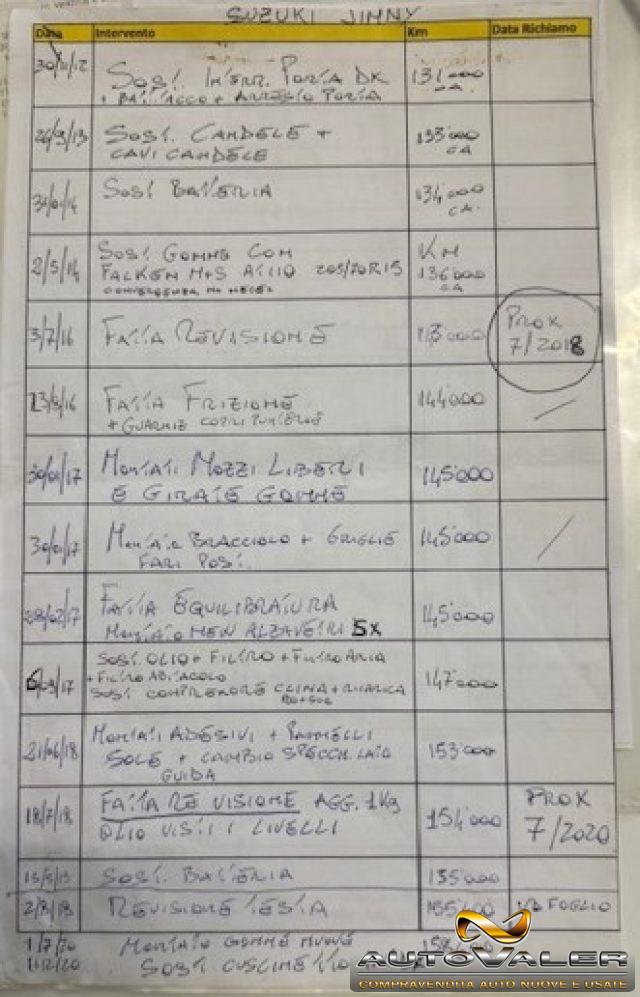 SUZUKI JIMNY
Data Intervento Km Data Richiamo
SOST. INTERR. PORTA DX 131'000
+ BATTACCO + ARRESTO PORTA CA.
26/9/13 SOST. CANDELE + 133'000
CAVI CANDELE CA
31/01/14 SOST BATTERIA 134'000
CA.
2/5/14 SOST GOMME COM KM
FALKEN M+S AT110 205/70R15 136'000
CA
3/7/16 FATTA REVISIONE PROX
7/2018
23/8/16 FATTA FRIZIONE 144'000
+ GUARNIZ COPRI PUNTERIE
30/01/17 MONTATI MOZZI LIBERI 145'000
E GIRATE GOMME
30/01/17 MONTATO BRACCIOLO + GRIGLIE 145'000
FARI POST.
28/02/17 FATTA EQUILIBRATURA 145'000
MONTATO NEW ALZAVETRI SX
6/03/17 SOST OLIO + FILTRO + FILTRO ARIA 147'000
+ FILTRO ABITACOLO
SOST COMPRESSORE CLIMA + RICARICA
21/06/18 MONTATI ADESIVI + PANNELLI 153'000
SOLE + CAMBIO SPECCH. LATO
GUIDA
18/7/18 FATTA REVISIONE AGG. 1Kg 154'000 PROX
OLIO VISTI I LIVELLI 7/2020
SOST. BATTERIA 155'000
REVISIONE TESTA FOGLIO
1/7/20 MONTATO GOMME NUOVE
1/12/20 SOST CUSCINETTO
AUTOVALER
COMPRAVENDITA AUTO NUOVE E USATE